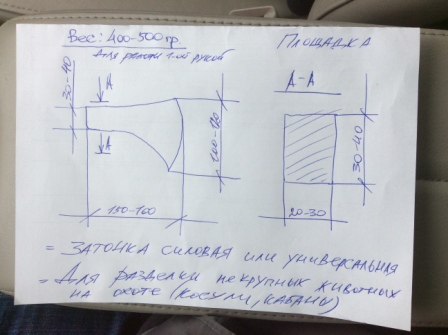 Вес: 400-500гр.
для работы 1-ой рукой
Площадка
А-А
А
А
30-40
100-120
150-160
30-40
20-30
= Заточка силовая или универсальная
= Для разделки некрупных животных
на охоте (косули, кабаны)